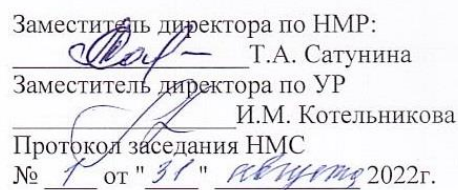 Заместитель директора по НМР:
Т.А. Сатунина
Заместитель директора по УР
И.М. Котельникова
Протокол заседания НМС
№ 1 от "31" августа 2022г.